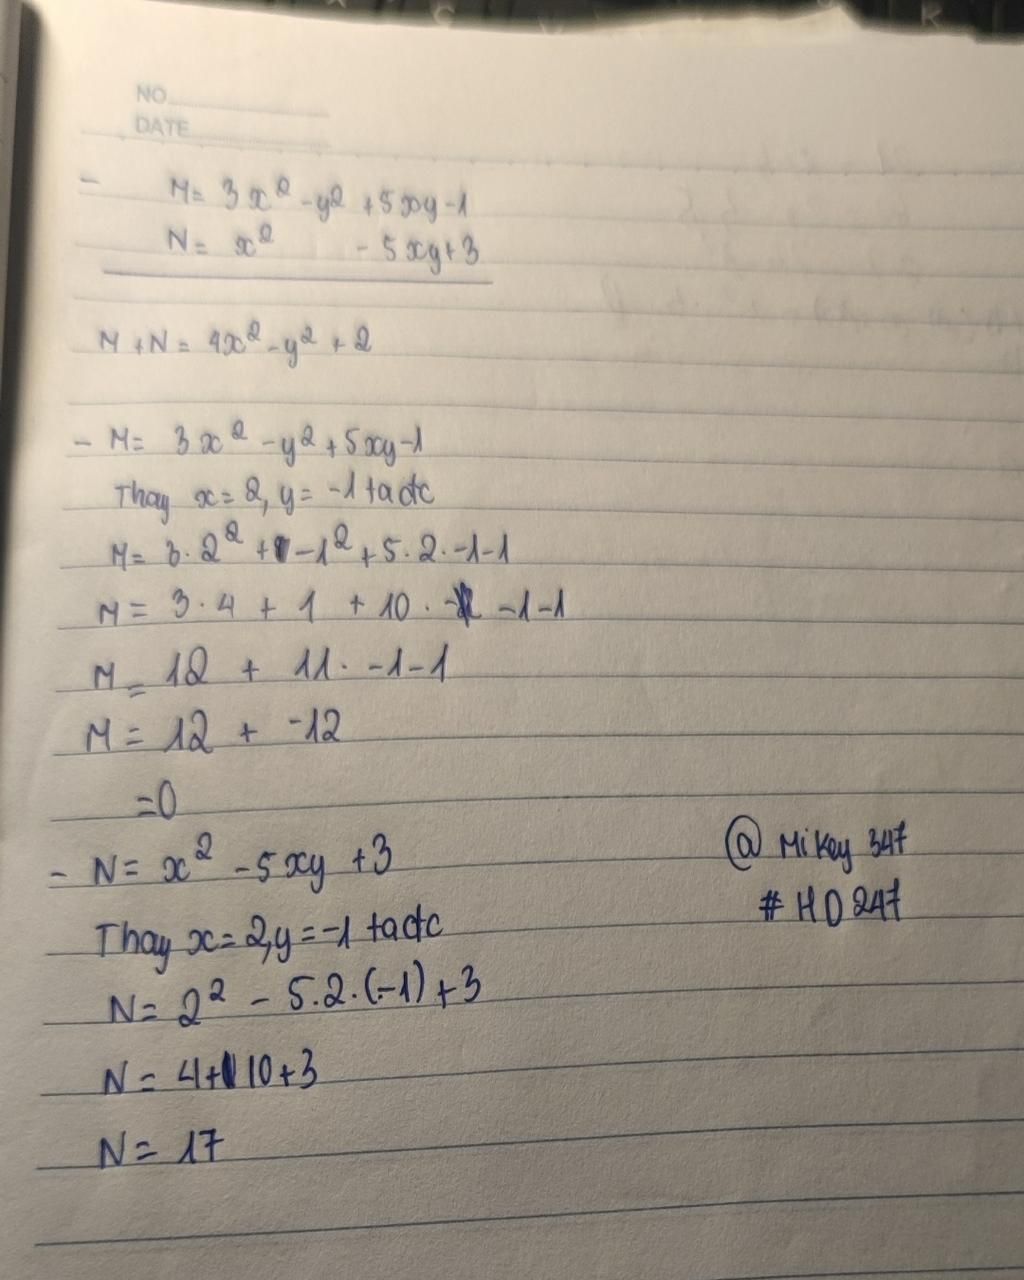 NO
DATE
- M= 3x² -y² +5xy-1
N= x² - 5xy+3
M+N= 4x²-y² + 2
- M= 3x² -y²+5xy-1
Thay x=2, y= -1 tađc
M= 3.2² + -1²+5.2.-1-1
M= 3.4 + 1 + 10. -1-1
M= 12 + 11. -1-1
M= 12 + -12
=0
- N= x² -5xy +3
@ Mikey 347
# HD247
Thay x=2,y=-1 tađc
N= 2² - 5.2.(-1)+3
N= 4+10+3
N= 17